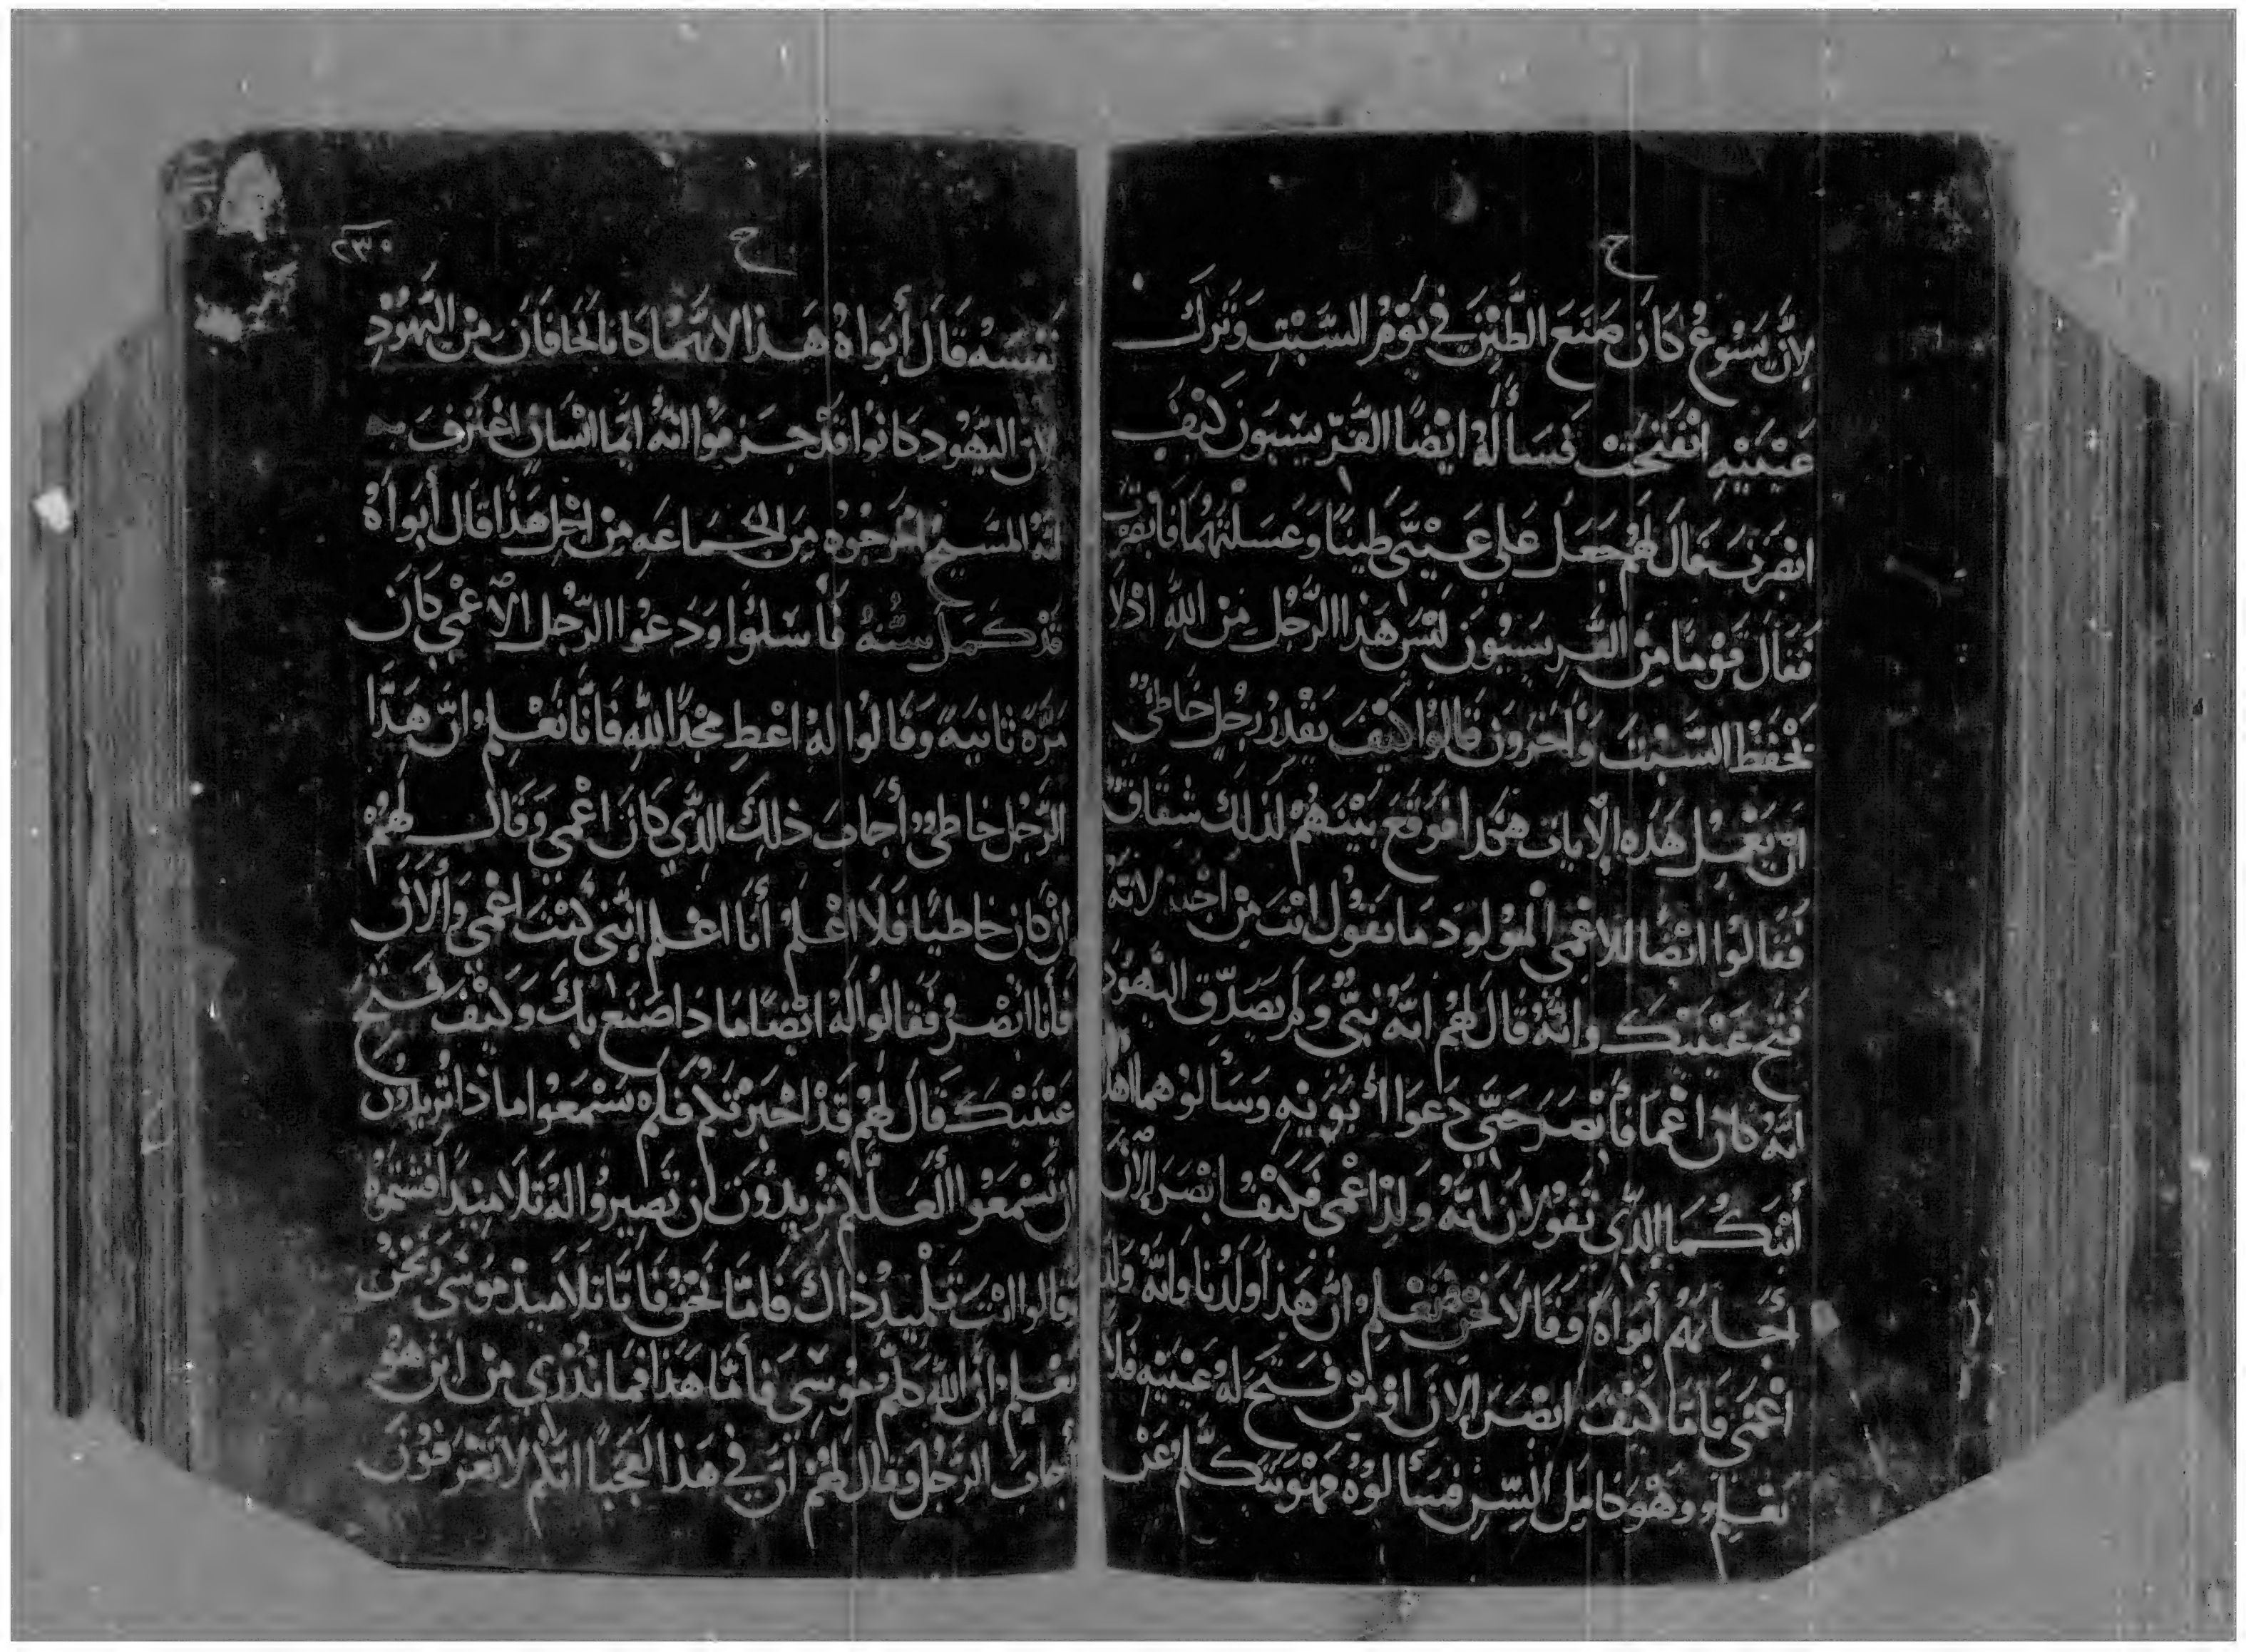 ح
لانَّ يَسُوعُ كَانَ صَنَعَ الطِّيْنَ في يَوْمِ السَّبْتِ وَتَرَكَ
عَيْنَيْهِ انْفَتَحَتْ فَسَأَلَهُ ايْضًا الفَرّيسيون كَيْفَ
ابصرت فقال لَهُم جَعَل عَلى عَيْنَيَّ طِينًا وَغسَلتهُمَا فَابْصَرت
فَقَالَ قَوْمًا مِنْ الفَرِيسيُونَ لَيْسَ هَذا الرَّجُل مِنْ اللهِ اذ لا
يَحْفَظ السَّبْتَ وَأَخَرُونَ قَالُوا كَيْفَ يَقْدِرُ رَجُل خَاطِئ
ان يَعْمَل هَذِه الآيات هكذا فَوَقَعَ بَيْنَهُمْ لذلِكَ شقَاق
فَقَالوُا ايْضًا للاعْمى المَوْلودَ مَا تَقوُل انْتَ مِنْ اجْله لانّهُ
فَتحَ عَيْنَيْكَ وانَّهُ قالَ لَهُم انَّه نَبيٌّ وَلَم يَصَدِّق اليَهُود
انّهُ كَانَ اعْمَا فَأَبْصَرَ حَتَّى دَعَوا أبَوَيْهِ وَسَأَلوُهمَا اهذا
أبْنَكُمَا الذِّي تَقُولانَ انَّهُ وَلِدَ اعْمى فَكَيْفَ ابْصَرَ الآن
أجَابَهُم أبوَاهُ وَقَالا نَحْنُ نَعْلم انَّ هَذا وَلَدُنا وَانَّهُ وَلد
اعْمَى فَامَا كَيْفَ ابصَرَ الآنَ اوْ مَنْ فَتَحَ لَهُ عَيْنَيْهِ فَلا
نَعْلم وَهُو كامِل السِّن فَسَأَلوُهُ فهْوَ يَتَكلَّم عَنْ
ح
٢٣٠
نَفسهُ قَالَ أبَوَاهُ هَذا لانّهُمَا كَانَا يَخَافَانِ مِنَ اليَهُودِ
لانَ اليَهُود كَانُوا قَدْ جَزَمُوا انَّهُ ايّمَا انْسَانٍ اعْتَرَفَ به
انهُ المَسيحُ اخرَجُوُه مِنَ الجَمَاعَهِ مِنْ اجْلِ هَذا قَال أبَوَاهُ
قَدْ كَمَل سنهُ فَأسْئلوُا وَدَعوْا الرَّجُل الاعْمى كَانَ
مَرَّةً ثانيَةً وَقَالُوا لهُ اعْطِ مَجْدًا للهِ فَانَّا نَعْلم انّ هَذا
الرَّجُل خاطئ أجَابَ ذلِكَ الذِّي كَانَ اعْمى وَقَال لهُم
ان كَان خاطيًا فَلا اعْلَمُ أَنا اعْلم إنَّني كنْت اعْمَى وَألان
فَأنَا ابْصرُ فَقَالوُا لَهُ ايْضًا مَا ذا صَنَع بِكَ وَكَيْفَ فَتَحَ
عَيْنَيْكَ قَالَ لهُم قَدْ اخْبَرْتكُمْ فَلم تسْمَعُوا ماذا تُريدُون
ان تَسْمَعُوا ألعَلَّكُم تُريدُون ان تَصيرُوا لهُ تَلامِيذًا فَشتَمُوهُ
وقالوا انْتَ تَلْمِيذ ذاكَ فَامَّا نَحْنُ فَانَّا تلامِيذ مُوسَى وَنَحْنُ
نَعْلم انَّ اللهَ كلّم مُوسَى فَأمَّا هَذا فَمَا نَدْرِي مِنْ اينَ هُوَ
أجَابَ الرَّجُل وَقَال لهُمْ انَّ في هَذا لَعَجَبًا انَّكم لا تَعْرفُونَ